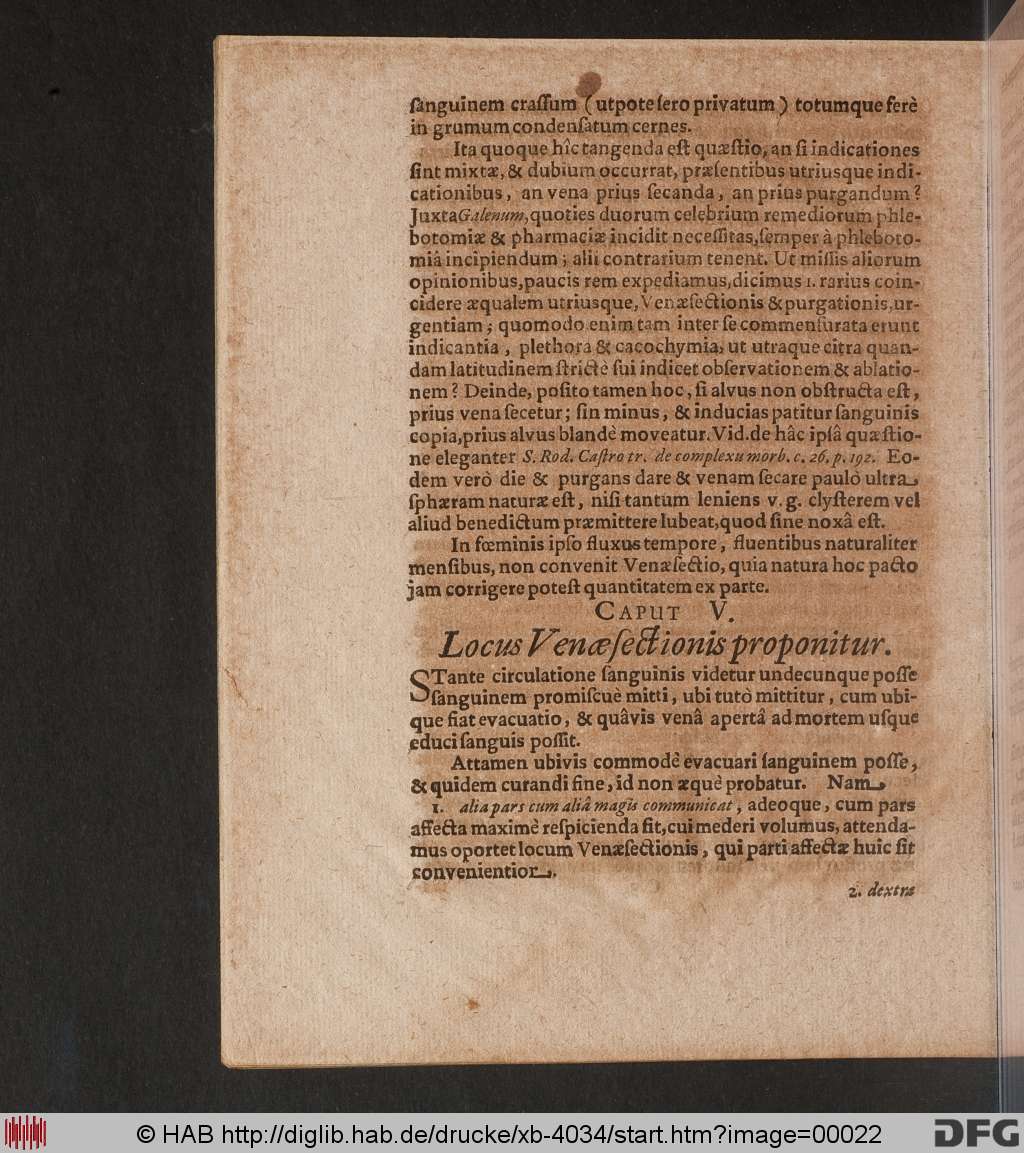 ſanguinem craſſum (utpote ſero privatum) totumque ferè
in grumum condenſatum cernes.
Ita quoque hîc tangenda eſt quæſtio, an ſi indicationes
ſint mixtæ, & dubium occurrat, præſentibus utriusque indi-
cationibus, an vena prius ſecanda, an prius purgandum?
Juxta Galenum, quoties duorum celebrium remediorum phle-
botomiæ & pharmaciæ incidit neceſſitas, ſemper à phleboto-
miâ incipiendum; alii contrarium tenent. Ut miſſis aliorum
opinionibus, paucis rem expediamus, dicimus 1. rarius coin-
cidere æqualem utriusque, Venæſectionis & purgationis, ur-
gentiam; quomodo enim tam inter ſe commenſurata erunt
indicantia, plethora & cacochymia, ut utraque citra quan-
dam latitudinem ſtrictè ſui indicet obſervationem & ablatio-
nem? Deinde, poſito tamen hoc, ſi alvus non obſtructa eſt,
prius vena ſecetur; ſin minus, & inducias patitur ſanguinis
copia, prius alvus blandè moveatur. Vid. de hâc ipſâ quæſtio-
ne eleganter S. Rod. Caſtro tr. de complexu morb. c. 26. p. 192. Eo-
dem verò die & purgans dare & venam ſecare paulò ultra
ſphæram naturæ eſt, niſi tantum leniens v. g. clyſterem vel
aliud benedictum præmittere lubeat, quod ſine noxâ eſt.
In fœminis ipſo fluxus tempore, fluentibus naturaliter
menſibus, non convenit Venæſectio, quia natura hoc pacto
jam corrigere poteſt quantitatem ex parte.
CAPUT V.
Locus Venæſectionis proponitur.
STante circulatione ſanguinis videtur undecunque poſſe
ſanguinem promiſcuè mitti, ubi tutò mittitur, cum ubi-
que fiat evacuatio, & quâvis venâ apertâ ad mortem uſque
educi ſanguis poſſit.
Attamen ubivis commodè evacuari ſanguinem poſſe,
& quidem curandi fine, id non æquè probatur. Nam
1. alia pars cum aliâ magis communicat, adeoque, cum pars
affecta maximè reſpicienda ſit, cui mederi volumus, attenda-
mus oportet locum Venæſectionis, qui parti affectæ huic ſit
convenientior.
2. dextræ
© HAB http://diglib.hab.de/drucke/xb-4034/start.htm?image=00022
DFG